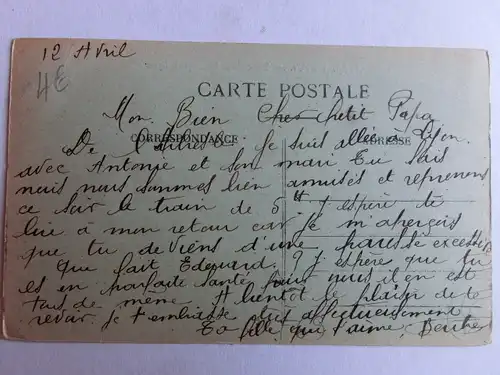 12 Avril
4€
CARTE POSTALE
Mon Bien Cher petit Papa,
CORRESPONDANCE
ADRESSE
De Je suis allée à Lyon.
avec Antonie et son mari Tu sais
nous nous sommes bien amusés et reprenons
ce soir le train de 5 H J'espère te
lire à mon retour car je m'aperçois
que tu deviens d'une paresse excessive
Que fait Edouard ? J'espère que tu
es en parfaite santé, pour nous il en est
tous de même A bientôt le plaisir de te
revoir. Je t'embrasse très affectueusement
Ta fille qui t'aime, Berthe